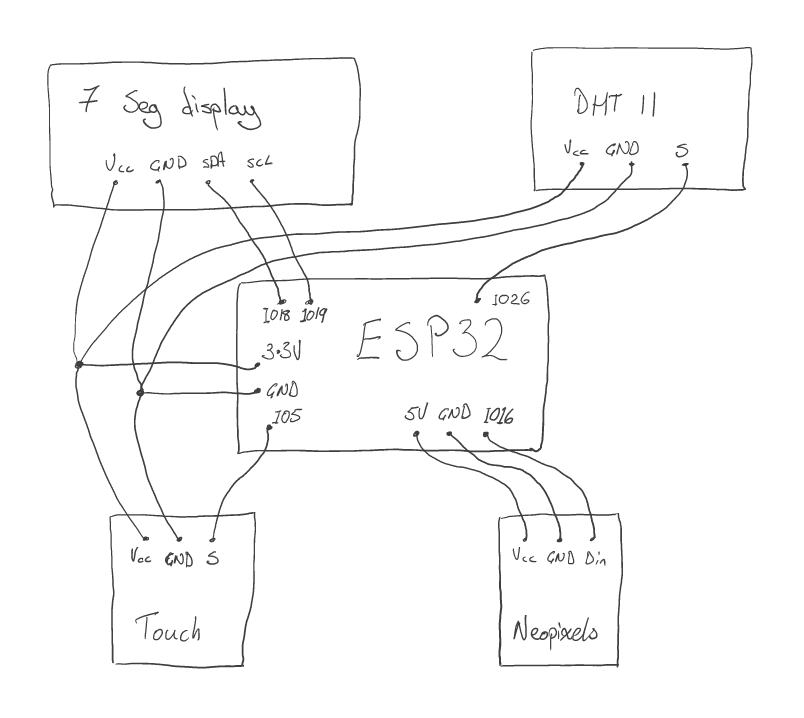 7 Seg display
Vcc GND SDA SCL
DHT 11
Vcc GND S
IO18 IO19
IO26
ESP32
3.3V
GND
IO5
5V GND IO16
Vcc GND S
Touch
Vcc GND Din
Neopixels